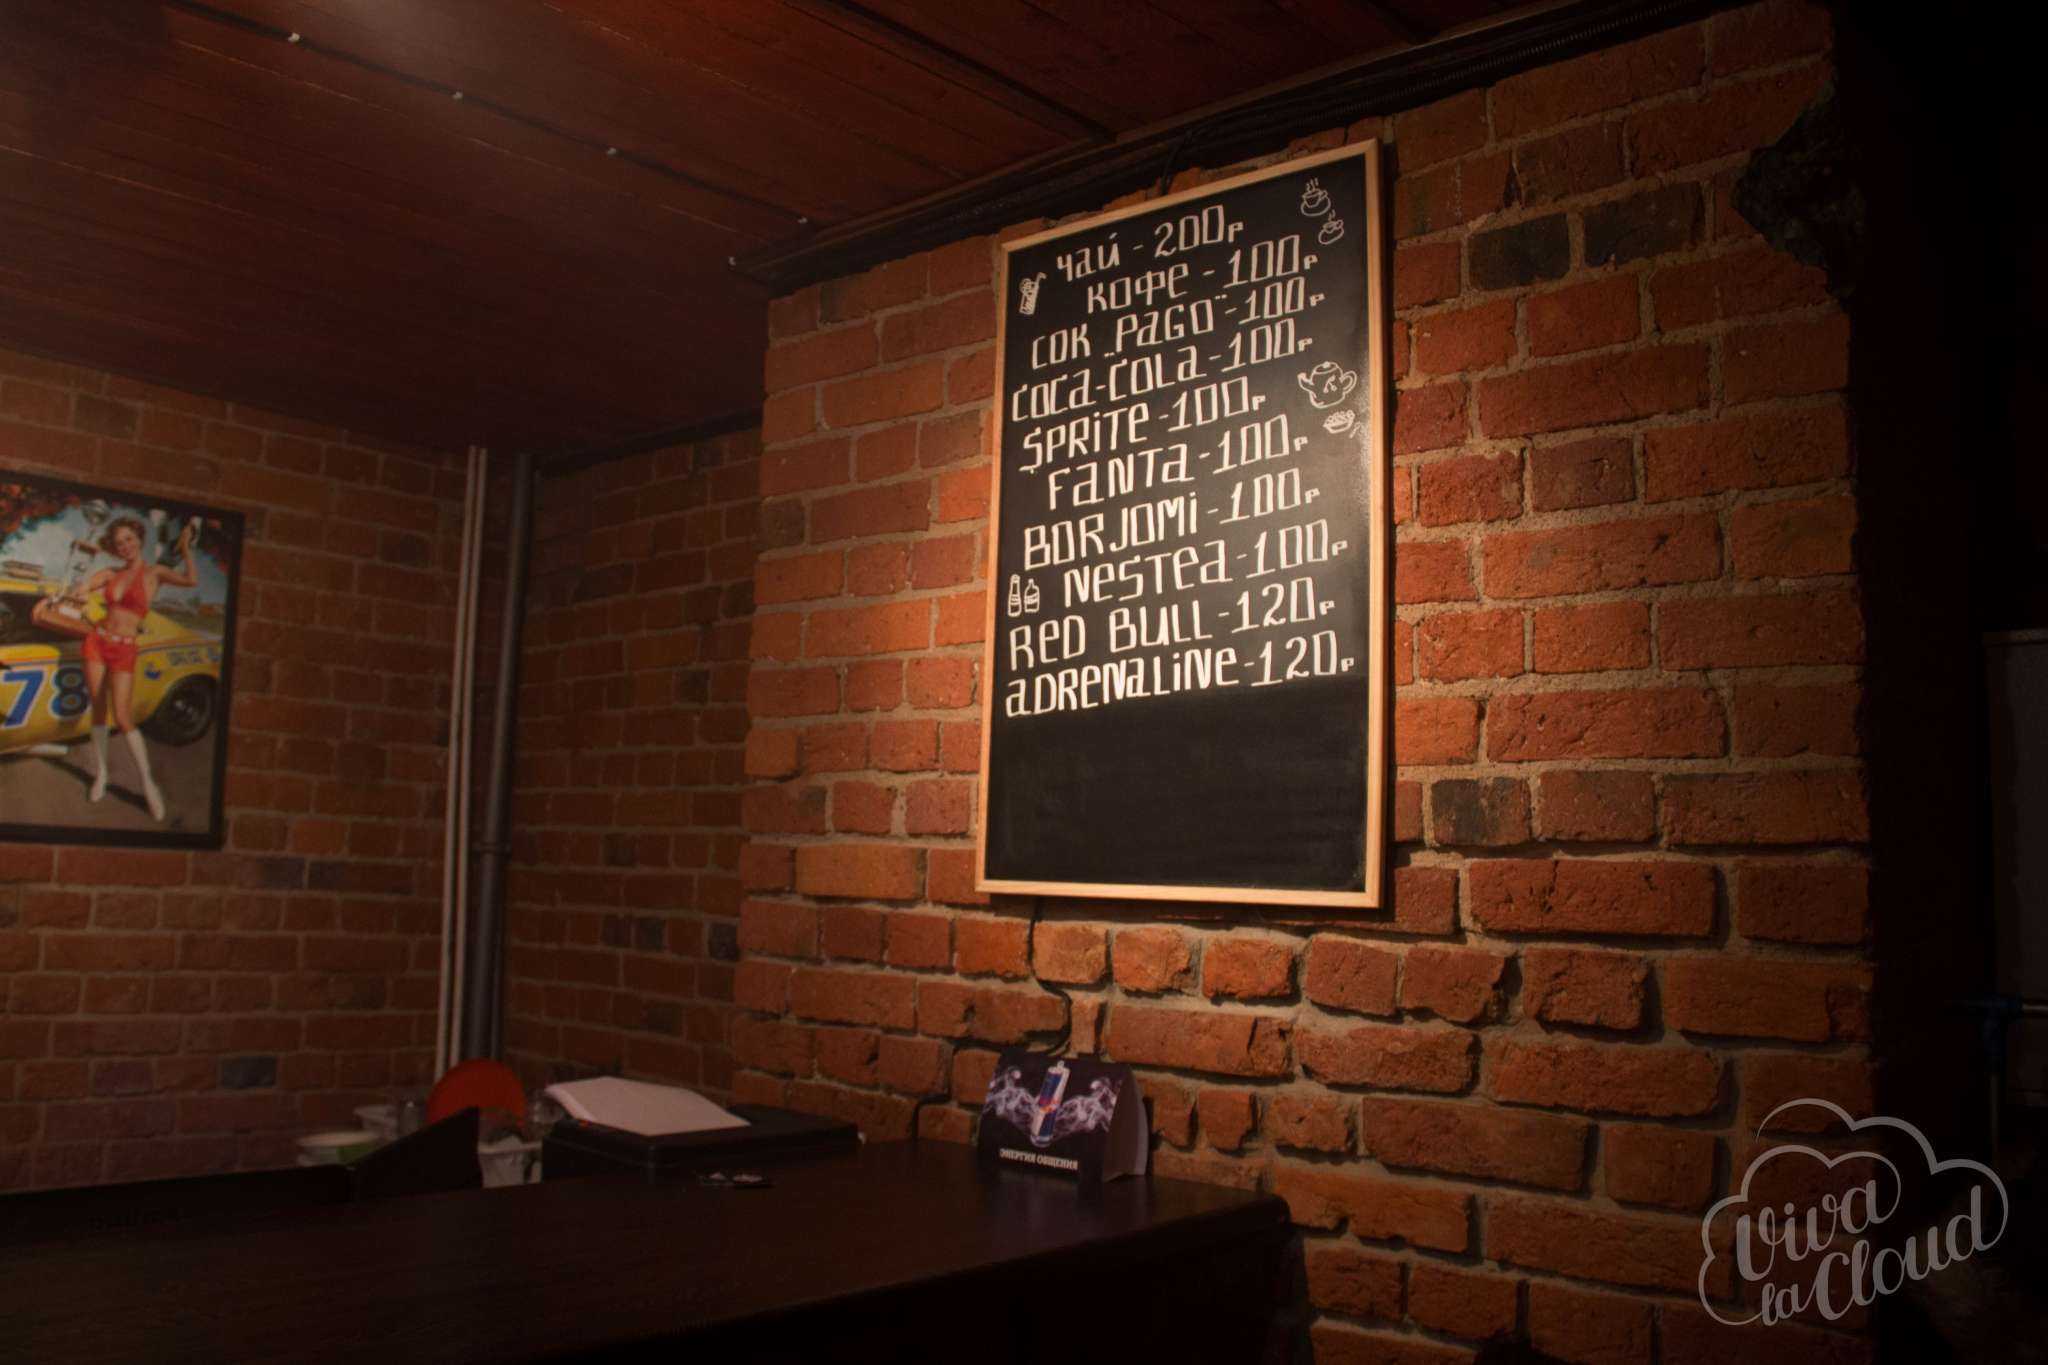 чай - 200р
кофе - 100р
сок „PAGO" - 100р
COCA-COLA - 100р
SPRITE - 100р
FANTA - 100р
BORJOMI - 100р
NESTEA - 100р
RED BULL - 120р
ADRENALINE - 120р
78
ЭНЕРГИЯ ОБЩЕНИЯ
Viva
la Cloud